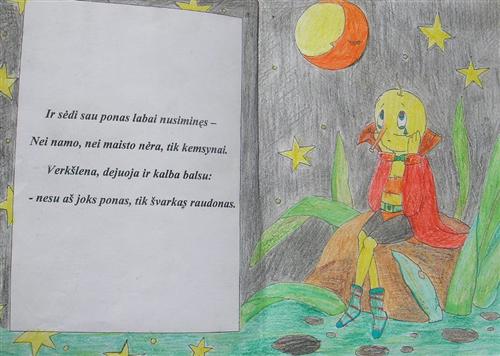 Ir sėdi sau ponas labai nusiminęs –
Nei namo, nei maisto nėra, tik kemsynai.
Verkšlena, dejuoja ir kalba balsu:
- nesu aš joks ponas, tik švarkąs raudonas.